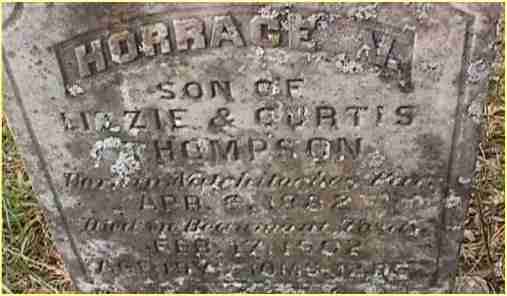 HORRACE V.
SON OF
LIZZIE & CURTIS
THOMPSON
Born in Natchitoches Par.
APR. 6, 1882
Died in Beaumont, Texas
FEB. 17, 1902
AGED 19 Y. 10 MS.